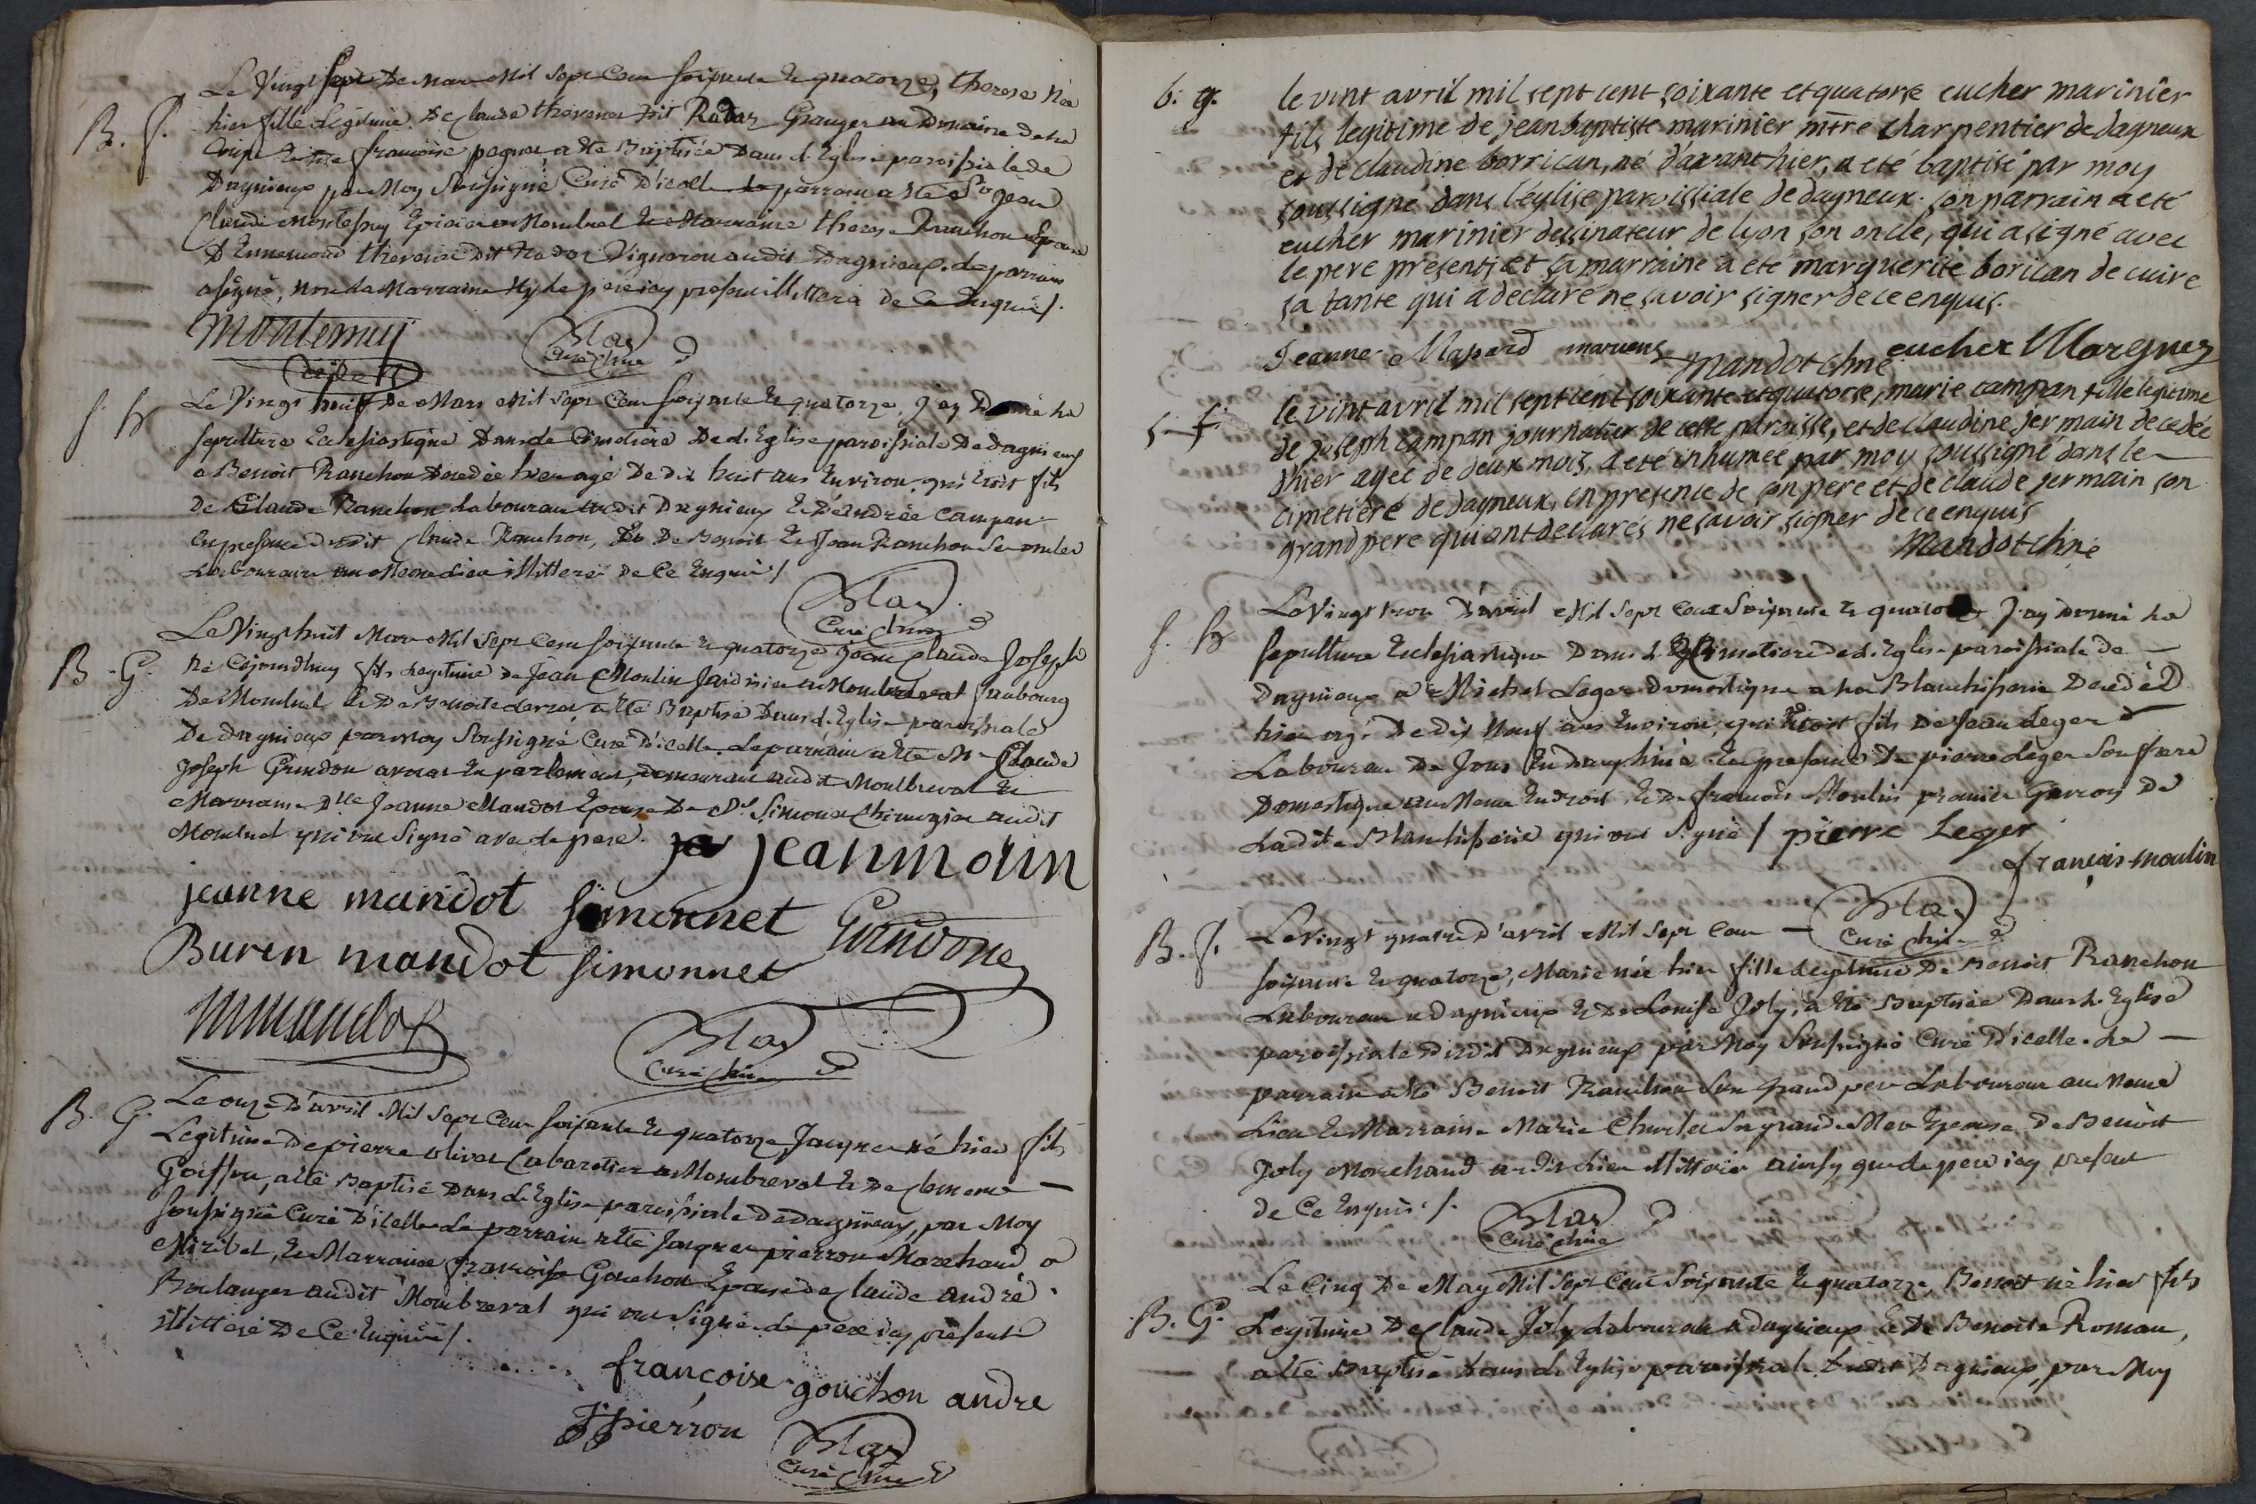 Le Vingt sept De Mars Mil Sept Cens soixante & quatorze, therese née
B. f.
hier fille Légitime De Claude thevenet dit Radoz Granger au Domaine de la
Coupe & de françoise paquet, a été Baptisée Dans L'Eglise paroissiale de
Dagnieux par Moy Soussigné Curé D'icelle le parrain a été Sr Jean
Claude Montessuy Epicier a Montluel & Marraine therese Ranchon Epouse
D'Ennemond thevenet Dit Radoz Vigneron audit Dagnieux. Le parrain
a signé, non la Marraine Ny le père icy present illitteré de Ce Enquis /.
Montessuy
Blas
Curé
Le Vingt huit De Mars Mil Sept Cens soixante & quatorze, J'ay Donné la
S. h
sepulture Eclesiastique Dans le Cimetière De L'Eglise paroissiale De Dagnieux
a Benoit Ranchon Decedée hier agé De Dix huit ans Environ, qui étoit fils
De Claude Ranchon Laboureur audit Dagnieux & D'Andrée Campan
En presence dudit Claude Ranchon, De Benoit & Jean Ranchon Ses oncles
Laboureurs au Meme Lieu illitteré De Ce Enquis /
Blas
Curé
Le Vingt huit Mars Mil Sept Cens soixante & quatorze Jean Claude Joseph
B. G.
né Cejourdhuy fils Legitime de Jean Moulin Jardinier a Montbreval faubourg
De Montluel & De Benoite a été Baptisé Dans L'Eglise paroissiale
De Dagnieux par Moy Soussigné Curé D'icelle. Le parrain a été Mr Claude
Joseph Grindon avocat En parlement, demeurant audit Montbreval &
Marraine Dlle Jeanne Mandot Epouse De Sr Simonet Chirurgien audit
Montluel qui ont Signé avec le pere.
jeanmolin
jeanne mandot simonnet Grindon
Buren mandot simonnet
Mmandot
Blas
Curé
Le onze D'avril Mil Sept Cens soixante & quatorze, Jacques né hier fils
B. G.
Legitime De pierre olivet Cabaretier a Montbreval & De Clemence
Goiffon, a été Baptisé Dans L'Eglise paroissiale De Dagnieux, par Moy
Soussigné Curé D'icelle. Le parrain a été Jacques pierron Marchand a
Miribel, & Marraine françoise Gouchon Epouse de Claude André
Boulanger audit Montbreval qui ont Signé. le père icy présent
illitteré De Ce Enquis /.
françoise gouchon andre
J pierron
Blas
Curé
b: g.
le vint avril mil sept cent soixante et quatorse eucher marinier
fils legitime de jean baptiste marinier mtre charpentier de dagneux
et de claudine borrican, né d'avant hier, a eté baptisé par moy
soussigné dans l'église paroissiale de dagneux. son parrain a eté
eucher marinier dessinateur de lyon son oncle, qui a signé avec
le pere present, et sa marraine a eté marguerite borican de cuire
sa tante qui a declaré ne savoir signer de ce enquis.
Jeanne Mandot chne eucher
s. f.
le vint avril mil sept cent soixante et quatorse, marie campan fille legitime
de joseph campan journalier de cette paroisse, et de claudine jermain decedée
d'hier agée de deux mois, a eté inhumée par moy soussigné dans le
cimetiere de dagneux, en presence de son pere et de claude jermain son
grand pere qui ont declarés ne savoir signer de ce enquis
Mandot chne
Le Vingt trois D'avril Mil Sept Cens Soixante & quatorze J'ay Donné la
S. h
sepulture Eclesiastique Dans le Cimetiere De L'Eglise paroissiale de
Dagnieux a Michel Leger Domestique a la Blanchisserie Decedé
hier agé De Dix Neuf ans Environ, qui Etoit fils De Jean Leger
Laboureur De Jons En Dauphiné En presence De pierre Leger Son frere
Domestique au Meme Endroit & De françois Moulin premier Garçon De
Ladite Blanchisserie qui ont Signé / pierre Leger
françois moulin
Blas
Curé
B. f.
Le Vingt quatre D'avril Mil Sept Cens
soixante & quatorze, Marie née hier fille Legitime De Benoit Ranchon
Laboureur a Dagnieux & De Louise Joly, a été Baptisée Dans L'Eglise
paroissiale Dudit Dagnieux par Moy Soussigné Curé D'icelle. Le
parrain a été Benoit Ranchon Son Grand per Laboureur au Meme
Lieu & Marraine Marie Sa grande Mere Epouse De Benoit
Joly Marchand audit Lieu illitteré ainsy que le père icy present
de Ce Enquis /.
Blas
Curé
Le Cinq De May Mil Sept Cens Soixante & quatorze, Benoit né hier fils
B. G.
Legitime De Claude Joly Laboureur a Dagnieux & De Benoite Roman,
a été Baptisé Dans L'Eglise paroissiale Dudit Dagnieux, par Moy